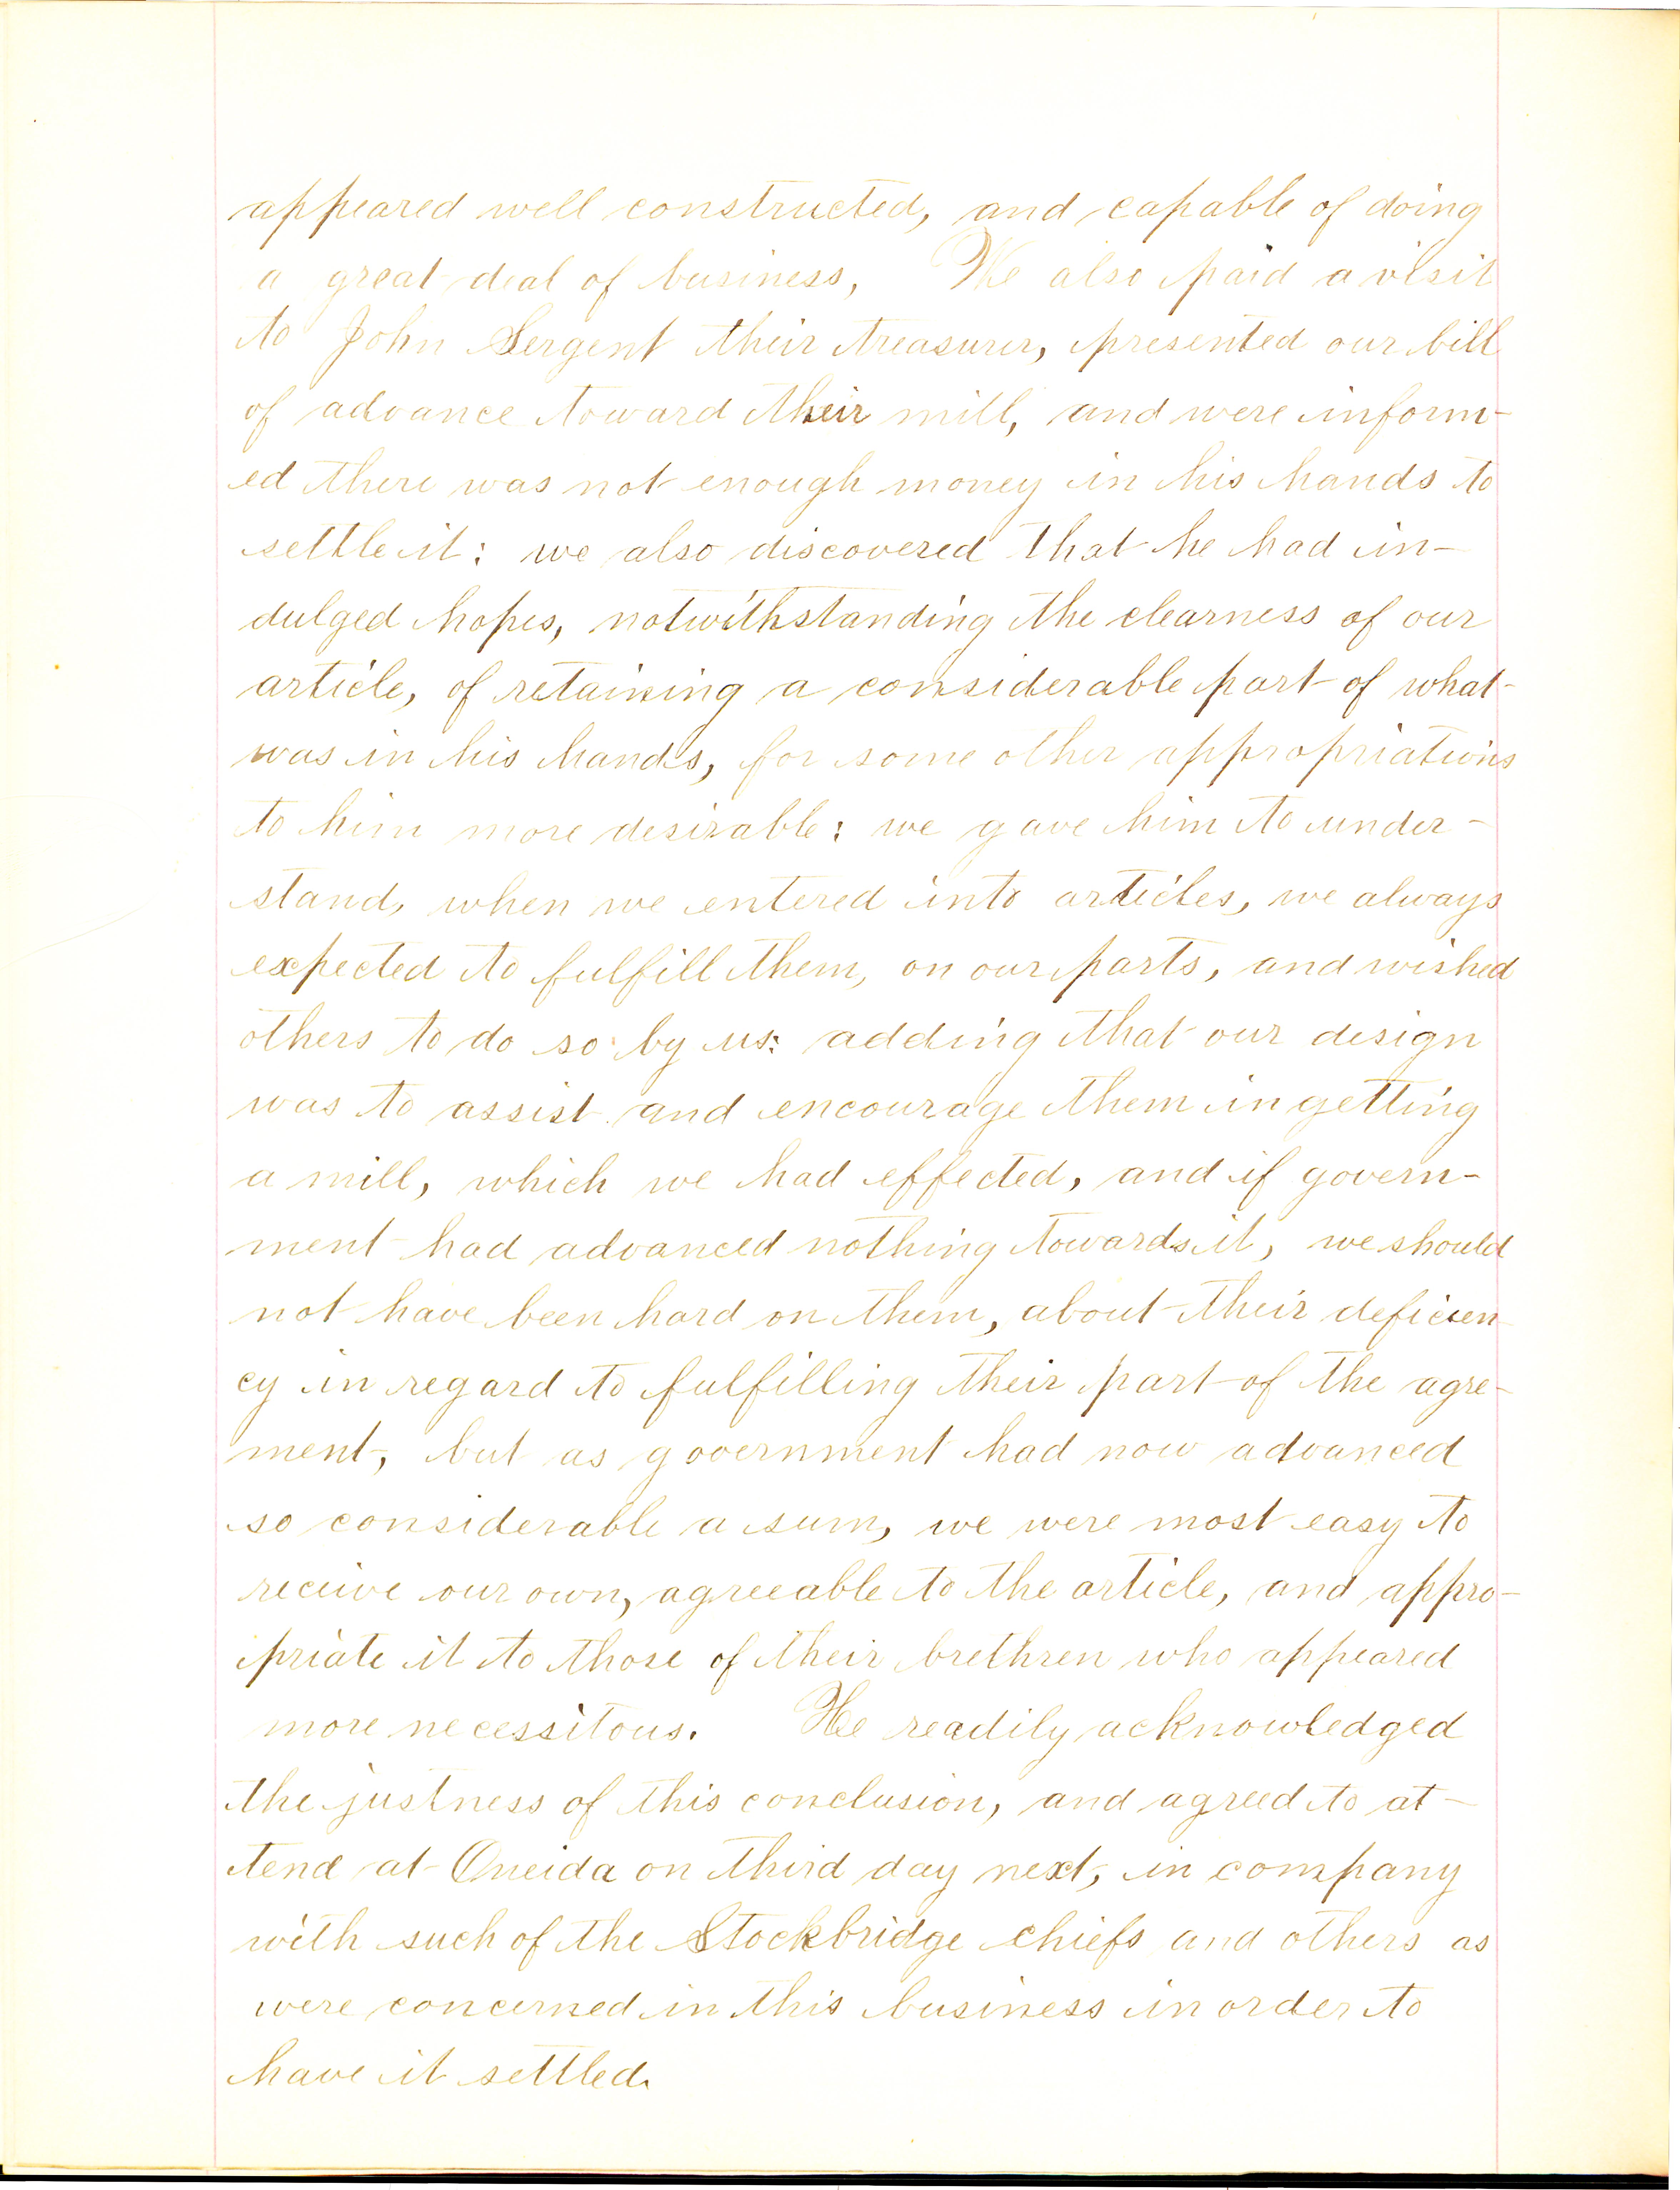 appeared well constructed, and capable of doing
a great deal of business, We also paid a visit
to John Sergent their treasurer, presented our bill
of advance toward their mill, and were inform-
ed there was not enough money in his hands to
settle it: we also discovered that he had in-
dulged hopes, notwithstanding the clearness of our
article, of retaining a considerable part of what
was in his hands, for some other appropriations
to him more desirable: we gave him to under-
stand, when we entered into articles, we always
expected to fulfill them, on our parts, and wished
others to do so by us: adding that our design
was to assist and encourage them in getting
a mill, which we had effected, and if govern-
ment had advanced nothing towards it, we should
not have been hard on them, about their deficien
cy in regard to fulfilling their part of the agre-
ment, but as government had now advanced
so considerable a sum, we were most easy to
receive our own, agreeable to the article, and appro-
priate it to those of their brethren who appeared
more necessitous. He readily acknowledged
the justness of this conclusion, and agreed to at-
tend at Oneida on third day next, in company
with such of the Stockbridge chiefs and others as
were concerned in this business in order to
have it settled.